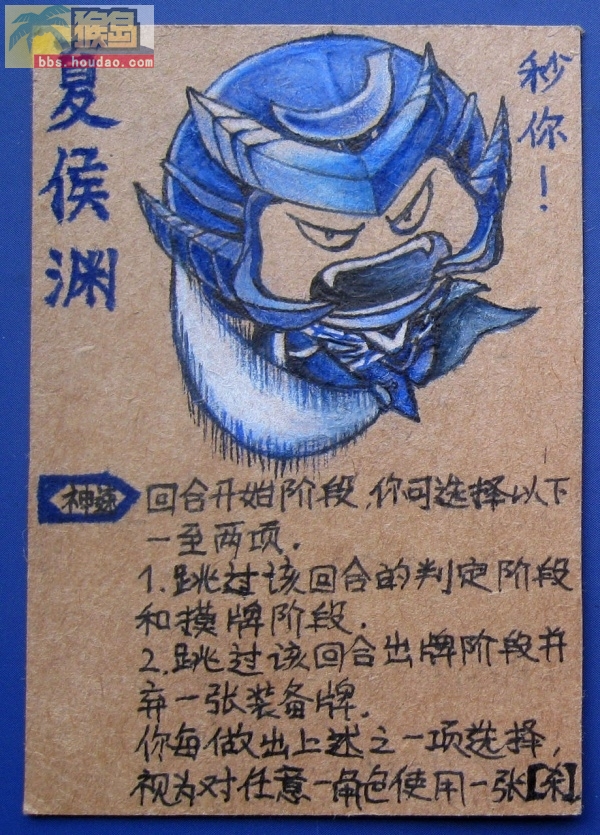 猴岛
bbs.houdao.com
夏侯渊
秒你！
神速
回合开始阶段，你可选择以下
一至两项．
1.跳过该回合的判定阶段
和摸牌阶段．
2.跳过该回合出牌阶段并
弃一张装备牌．
你每做出上述之一项选择，
视为对任意一角色使用一张【杀】